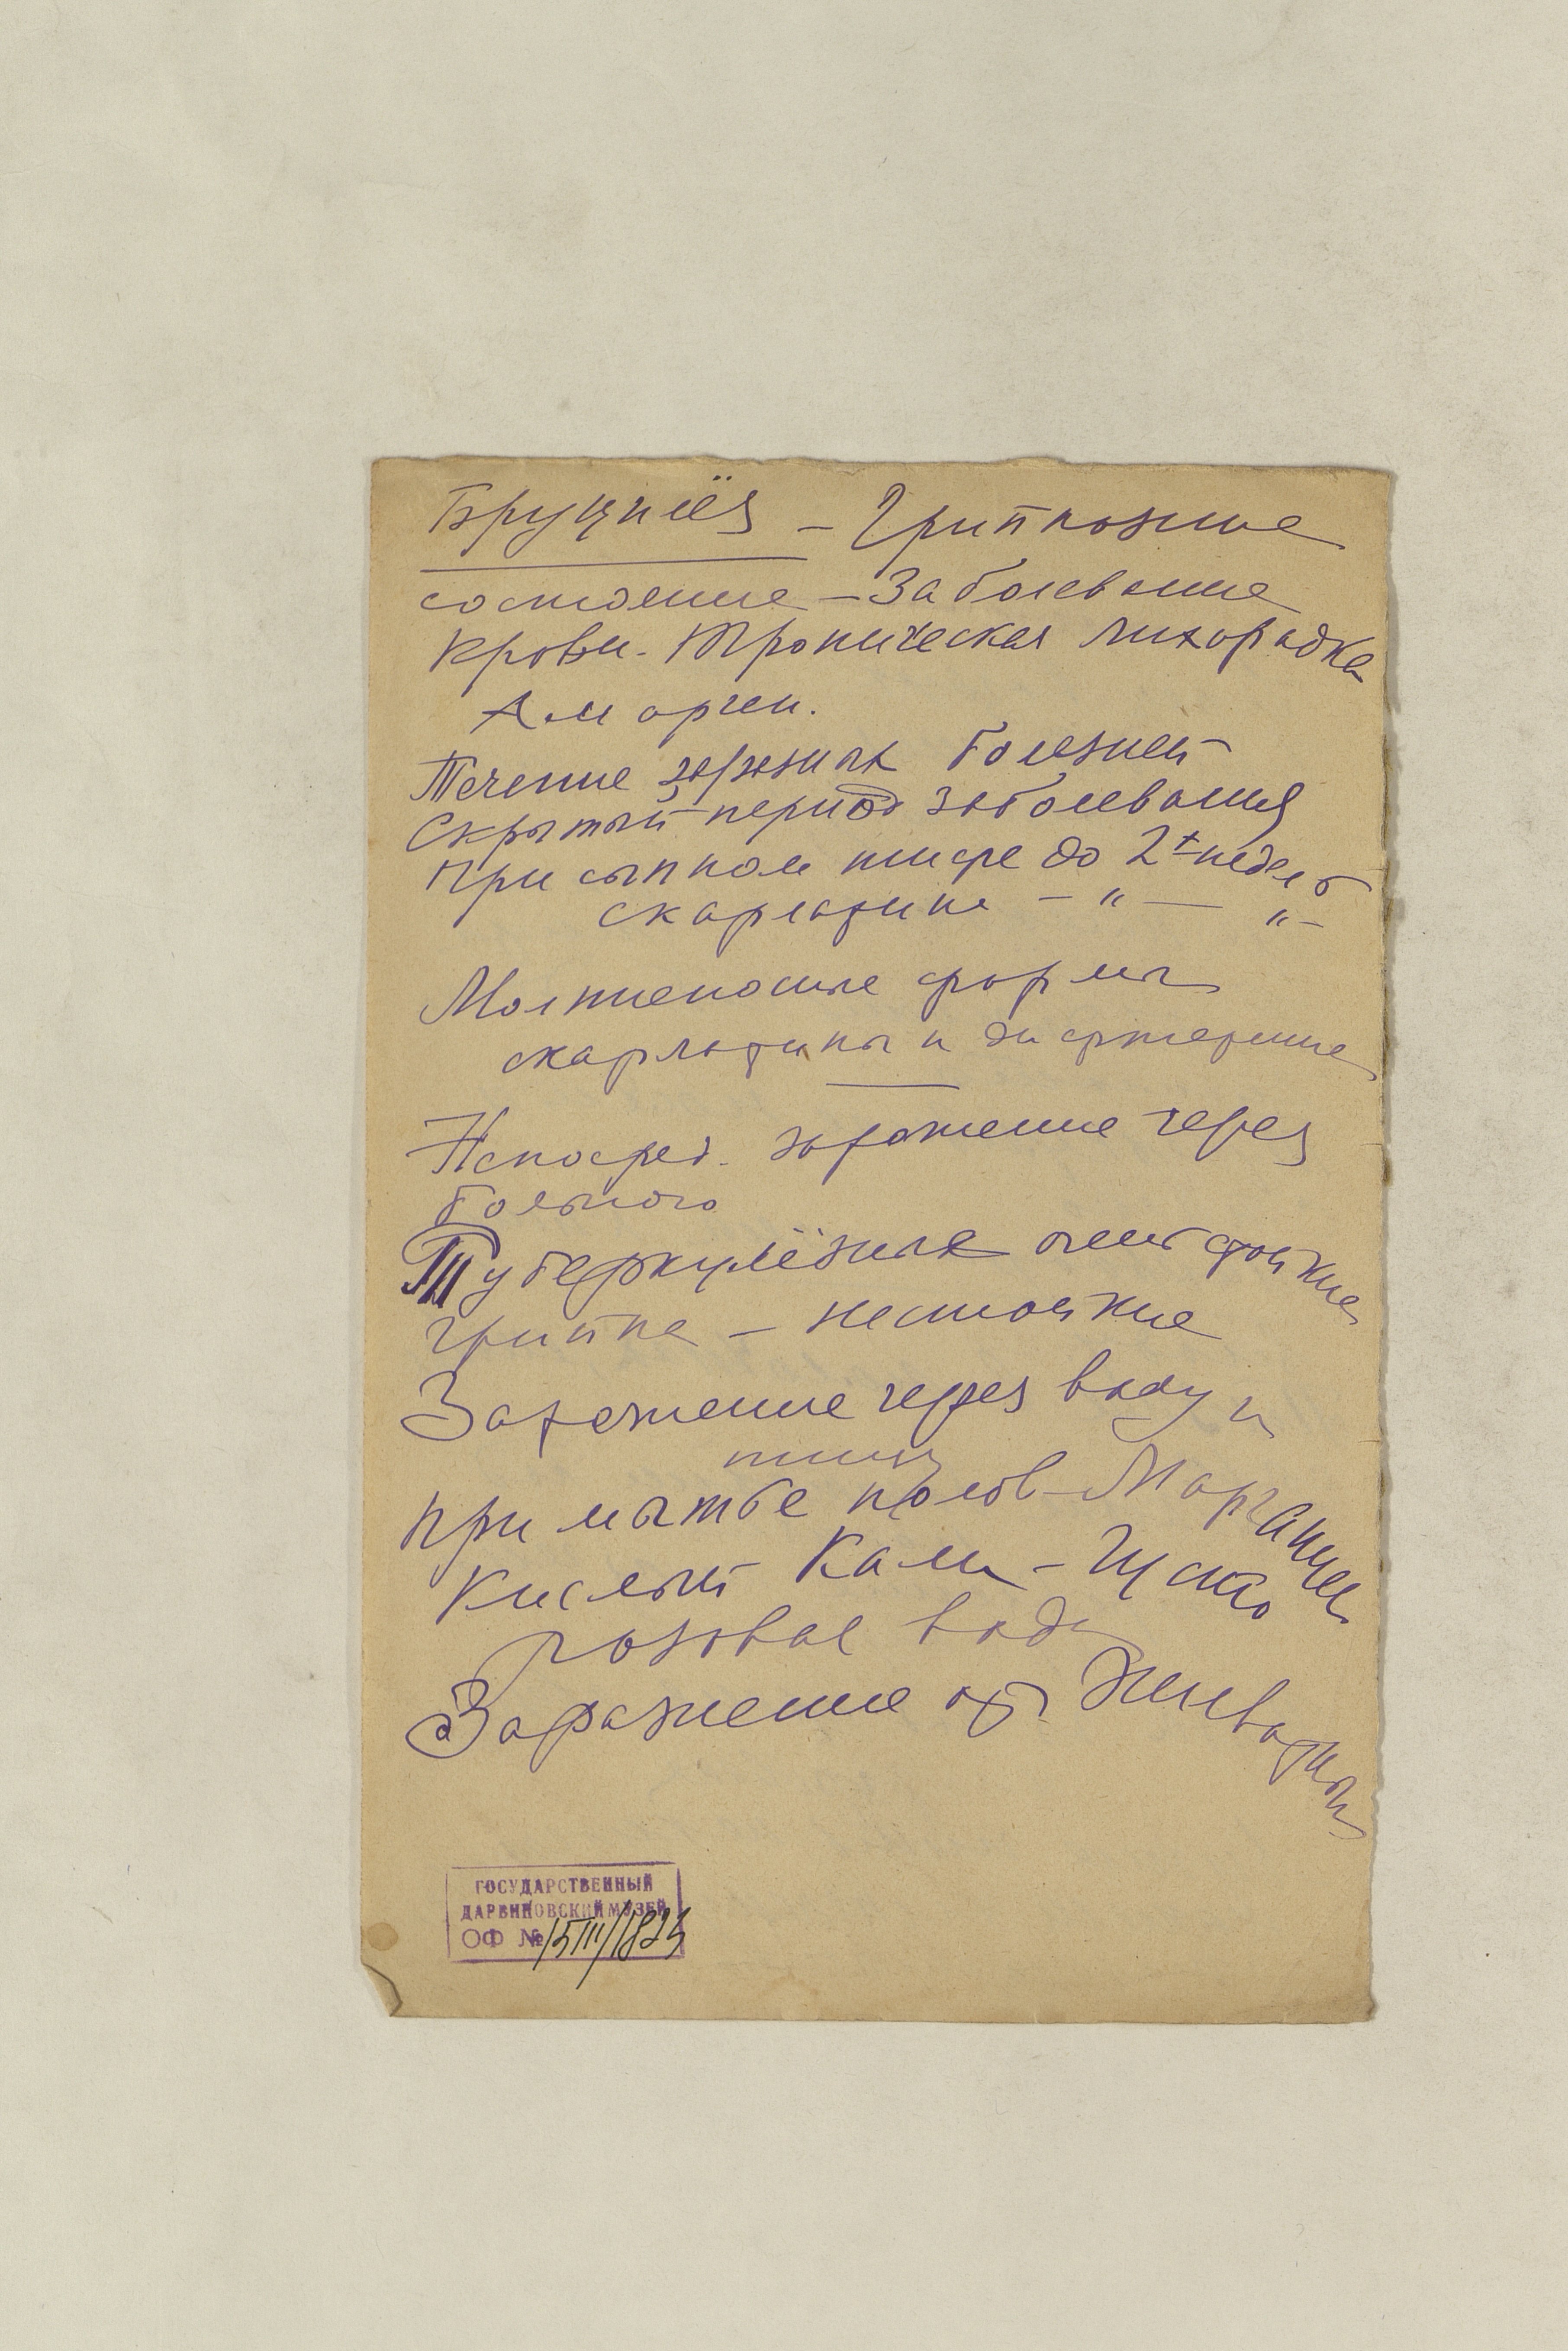 Бруцилёз – Гриппозные
состояние – Заболевание
крови. Тропическая лихорадка
Течение заразных болезней
Скрытый период заболевания
При сыпном тифе до 2х недель
скарлатине – " — " –
Молниеносные формы
скарлатины и дифтерение
Непосред. заражение через
больного
Туберкулёзные очень стойкие
гриппа – нестойкие
Заражение через воду и
пищу
При мытье полов – Марганцев
Кислый Кали –
розовая вода
Заражение от животных
ГОСУДАРСТВЕННЫЙ
ДАРВИНОВСКИЙ МУЗЕЙ
ОФ № 15III/1823